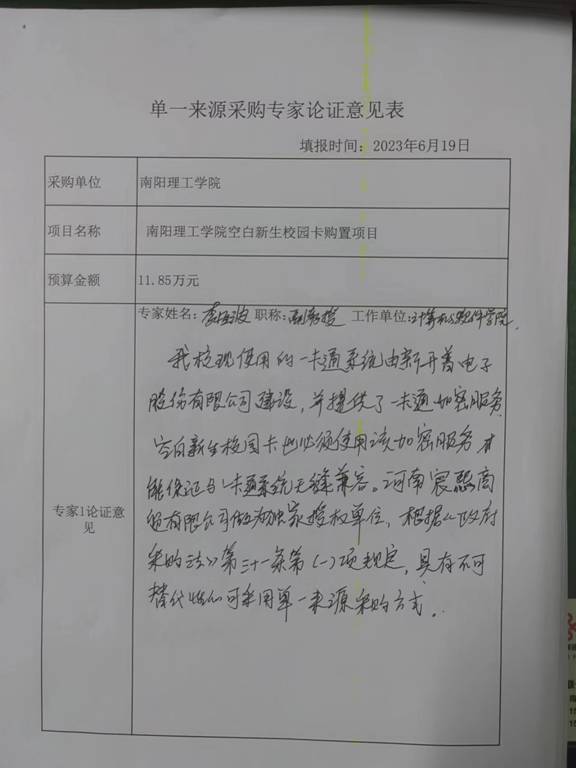 单一来源采购专家论证意见表
填报时间：2023年6月19日
采购单位 南阳理工学院
项目名称 南阳理工学院空白新生校园卡购置项目
预算金额 11.85万元
专家姓名：李 波 职称：副教授 工作单位：计算机与软件学院
专家1论证意见
我校现使用的一卡通系统由新开普电子
股份有限公司建设，并提供了一卡通加密服务，
空白新生校园卡也必须使用该加密服务才
能保证与一卡通系统无缝兼容。河南宸熙商
贸有限公司做为独家授权单位，根据《政府
采购法》第三十一条第（一）项规定，具有不可
替代性，可采用单一来源采购方式。